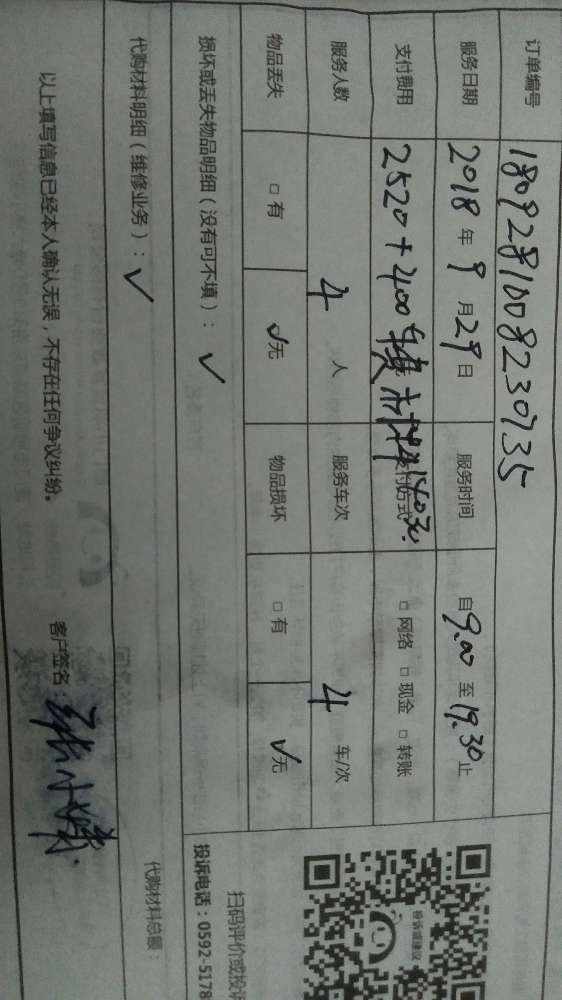 订单编号 180928100823 0735
服务日期 2018 年 9 月 29 日 服务时间 自 9.00 至 19.30 止
支付费用 2520+400 材料 140元. 支付方式 □ 网络 □ 现金 □ 转账
服务人数 4 人 服务车次 4 车/次
物品丢失 □ 有 √无 物品损坏 □ 有 √无
损坏或丢失物品明细（没有可不填）： ✓
代购材料明细（维修业务）： ✓
代购材料总额：
以上填写信息已经本人确认无误，不存在任何争议纠纷。 客户签名：
投诉或建议
扫码评价或投诉
投诉电话：0592-5178